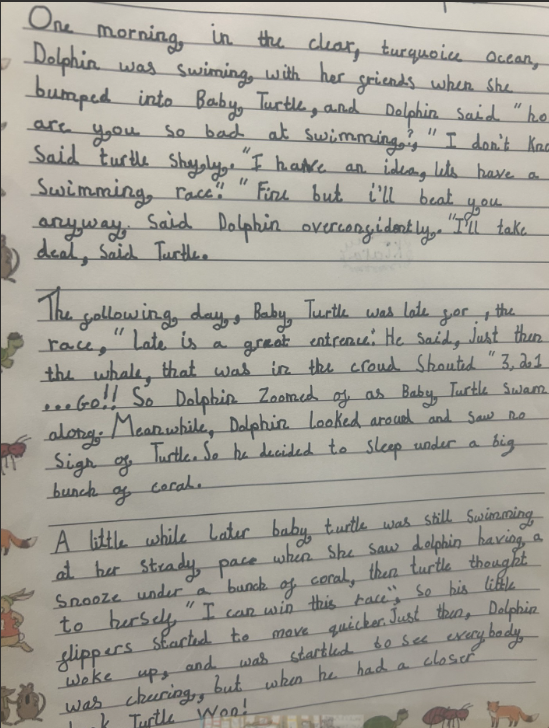 One morning, in the clear, turquoice ocean,
Dolphin was swiming, with her friends when she
bumped into Baby Turtle, and Dolphin said "ho
are you so bad at swimming?," "I don't kno
Said turtle shyly. "I have an idea, lets have a
Swimming race". "Fine but i'll beat you
anyway. Said Dolphin overconfidently. "I'll take
deal, said Turtle.
The following day, Baby Turtle was late for, the
race, "Late is a great entrence." He said, Just then
the whale, that was in the croud Shouted "3, 2, 1
...Go!! So Dolphin Zoomed of as Baby Turtle swam
along. Meanwhile, Dolphin looked aroud and saw no
Sign of Turtle. So he decided to sleep under a big
bunch of coral.
A little while Later baby turtle was still Swimming
at her strady pace when she saw dolphin having a
Snooze under a bunch of coral, then turtle thought
to herself "I can win this race", so his little
flippers started to move quicker. Just then, Dolphin
woke up, and was startled to see everybody
was cheering, but when he had a closer
Turtle Won!